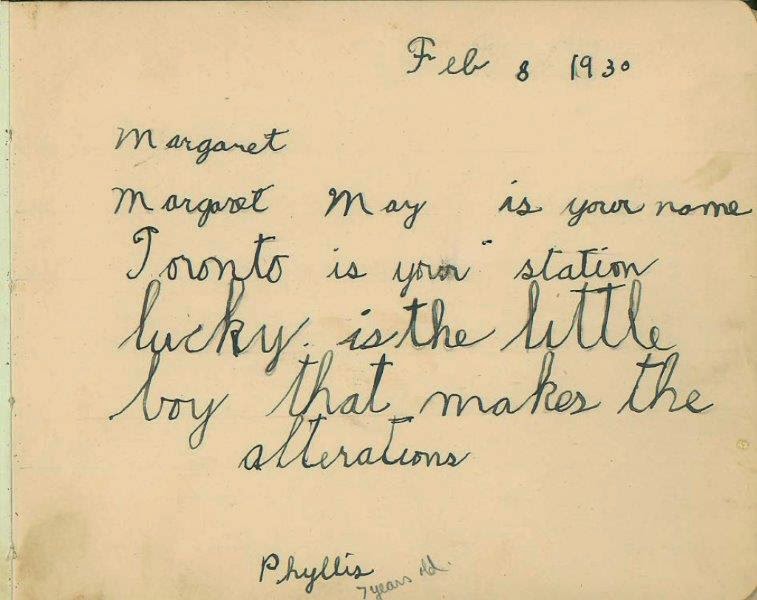 Feb 8 1930
Margaret
Margaret May is your name
Toronto is your station
lucky is the little
boy that makes the
alterations
Phyllis
7 years old.